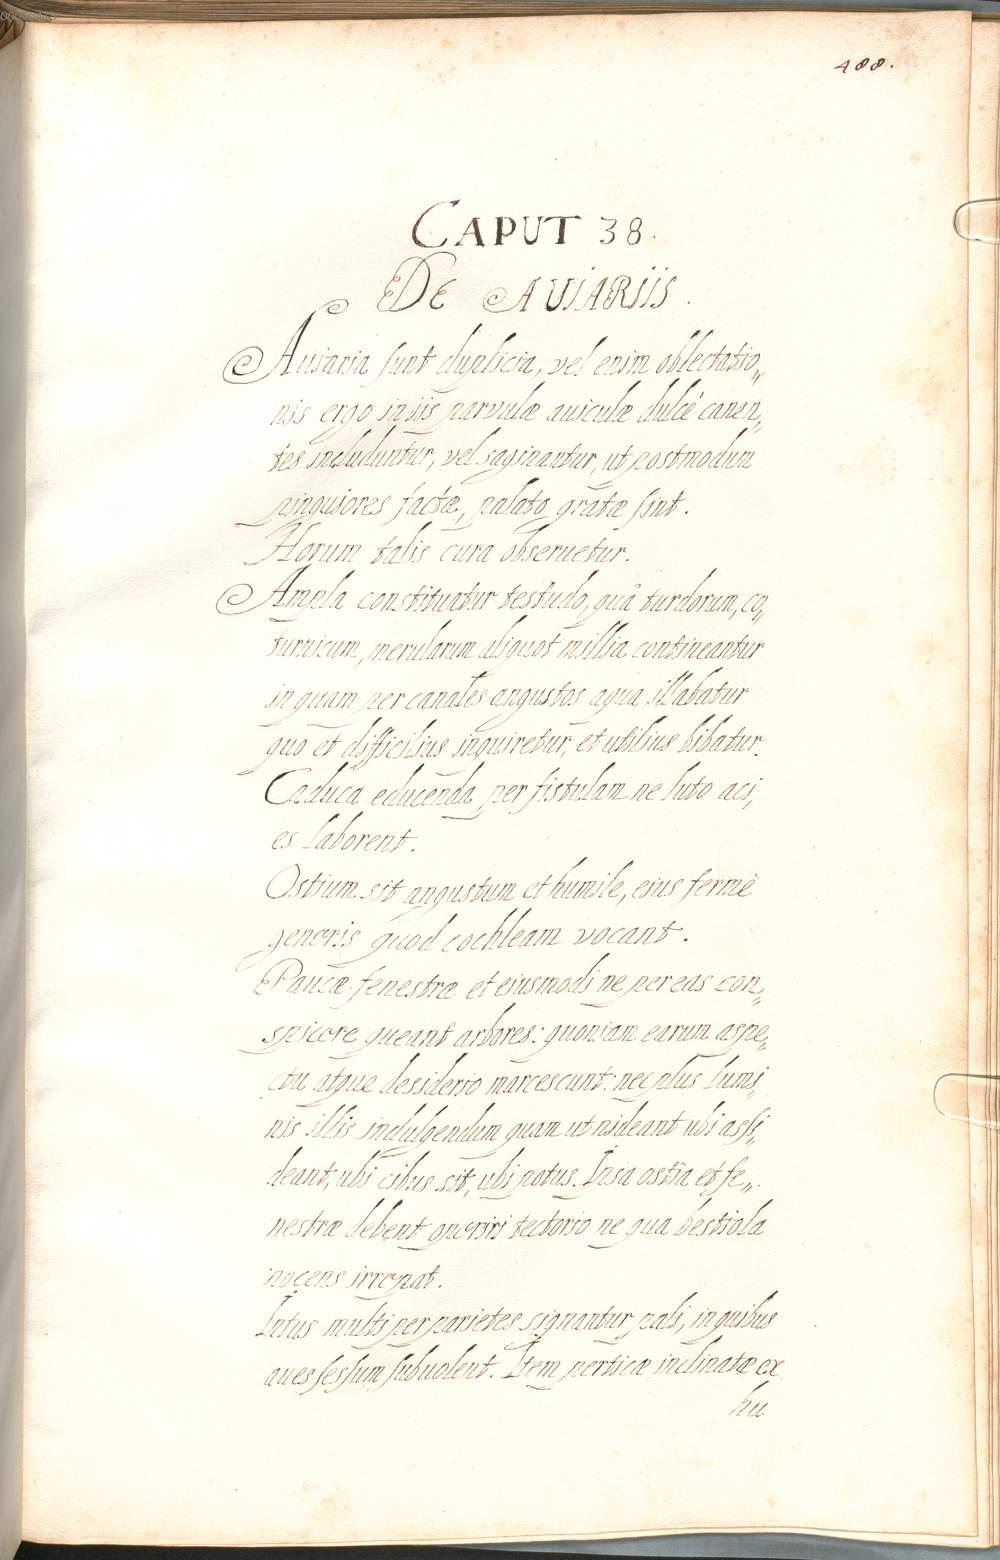 488.
CAPUT 38.
DE AVIARIIS.
Aviaria sunt duplicia, vel enim oblectatio„
nis ergo in iis parvulæ aviculæ dulcè canen„
tes includuntur, vel saginantur, ut postmodum
pinguiores factæ, palato gratæ sint.
Horum talis cura observetur.
Ampla constituatur testudo, quâ turdorum, co„
turnicum, merularum aliquot millia contineantur
in quam per canales angustos aqua illabatur
quo et difficilius inquiretur, et utilius bibatur.
Caduca educenda per fistulam ne luto aci„
es laborent.
Ostium sit angustum et humile, ejus fermè
generis quod cochleam vocant.
Paucæ fenestræ et ejusmodi ne per eas con„
spicere queant arbores: quoniam earum aspe„
ctu atque dessiderio marcescunt: nec plus lumi„
nis illis indulgendum quam ut videant ubi assi„
deant, ubi cibus sit, ubi potus. Ipsa ostia et fe„
nestræ debent operiri tectorio ne qua bestiola
nocens irrepat.
Intus multi per parietes signantur pali, in quibus
aves sessum subvolent. Item perticæ inclinatæ ex
hu